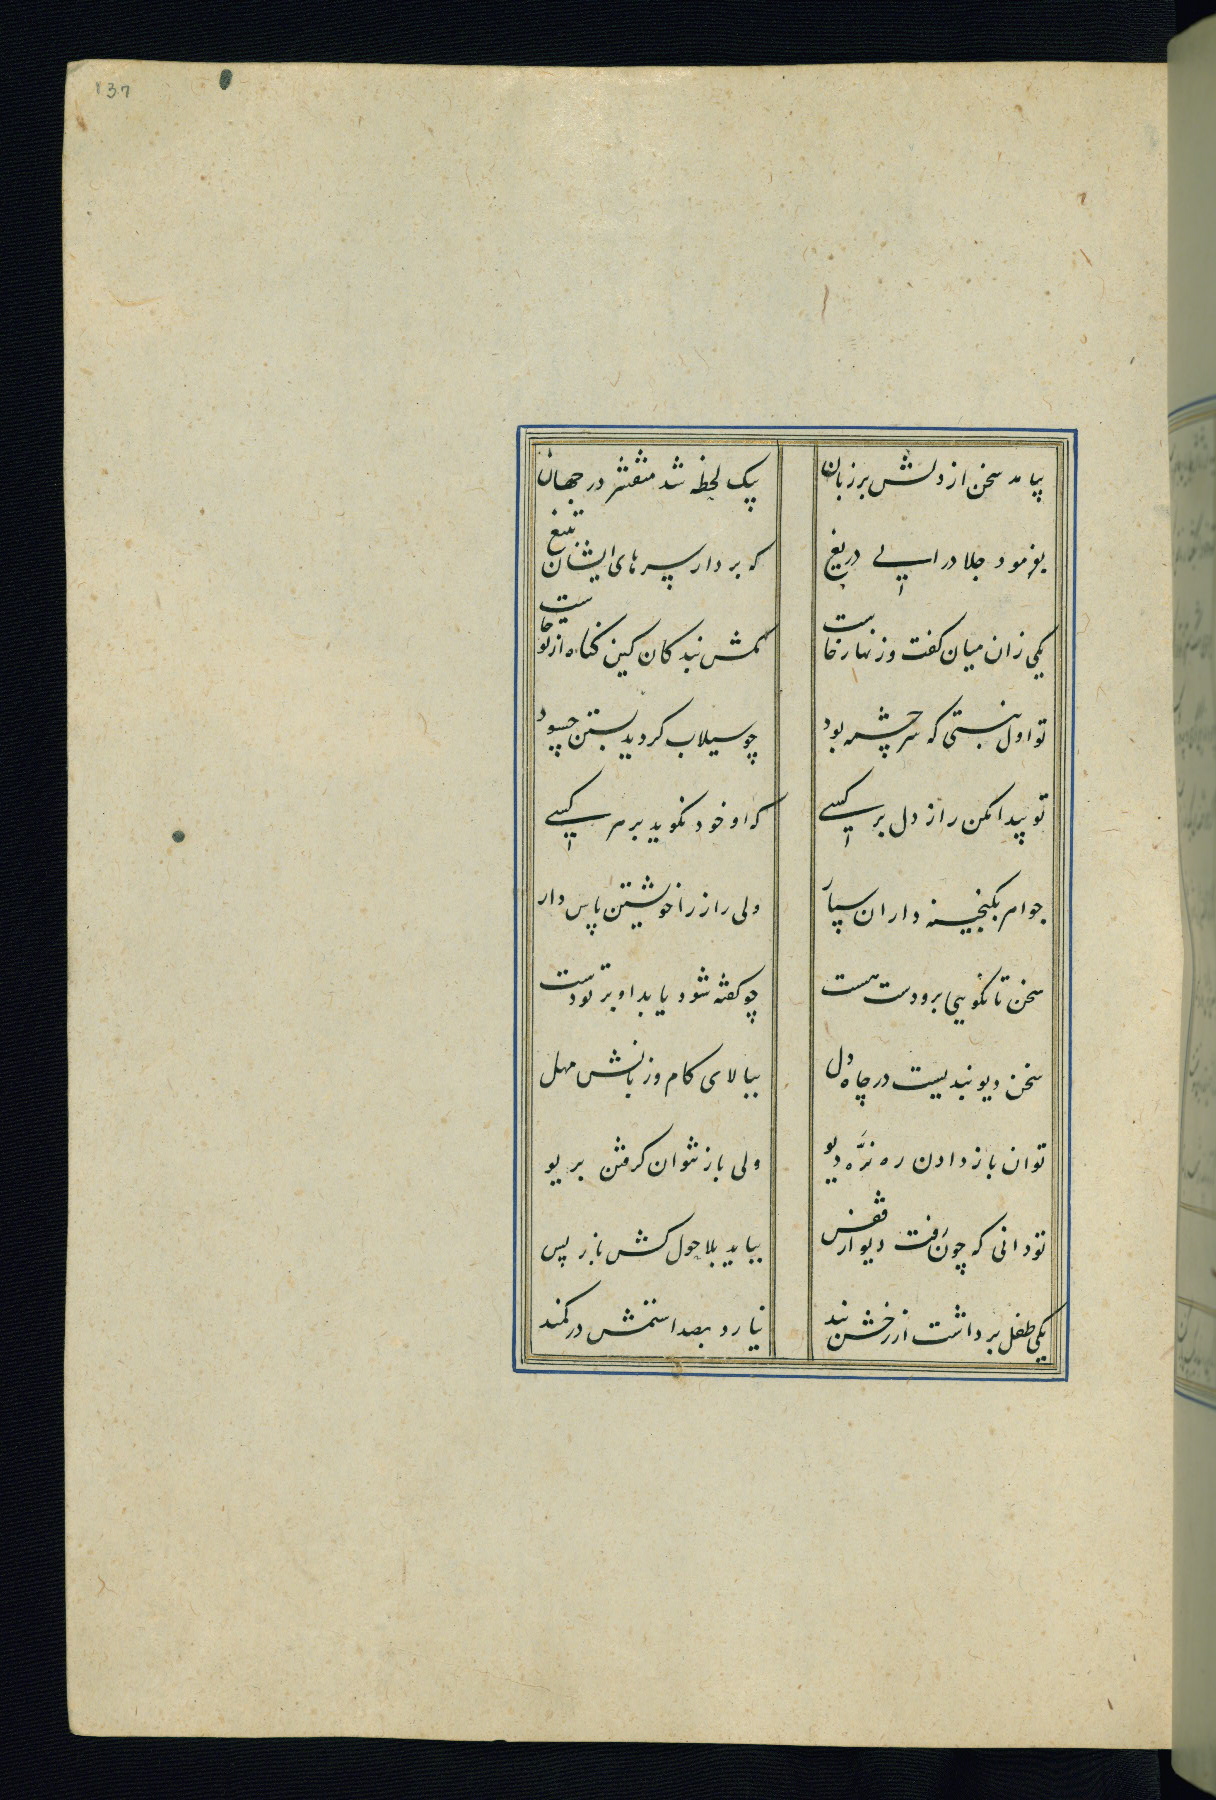 137
بیامد سخن از دلش بر زبان
بیک لحظه شد منتشر در جهان
بفرمود جلاد را بی دریغ
که بردار سرهای ایشان بتیغ
یکی زان میان گفت و زنهار خاست
مکش بندکان کین کناه از تو خاست
تو اول نبستی که سرچشمه بود
چو سیلاب کردید بستن چسود
تو پیدا مکن راز دل بر کسی
که او خود نکوید بر هر کسی
جواهر بکنجینه داران سپار
ولی راز را خویشتن پاس دار
سخن تا نکویی برو دست هست
چو کفته شود یابد او بر تو دست
سخن دیو بندیست در چاه دل
ببالای کام و زبانش مهل
توان باز دادن ره نرّه دیو
ولی باز نتوان کرفتن بریو
تو دانی که چون رفت دیو از قفس
بیاید بلاحول کس باز پس
یکی طفل برداشت از رخش بند
نیارد بصد استمش در کمند